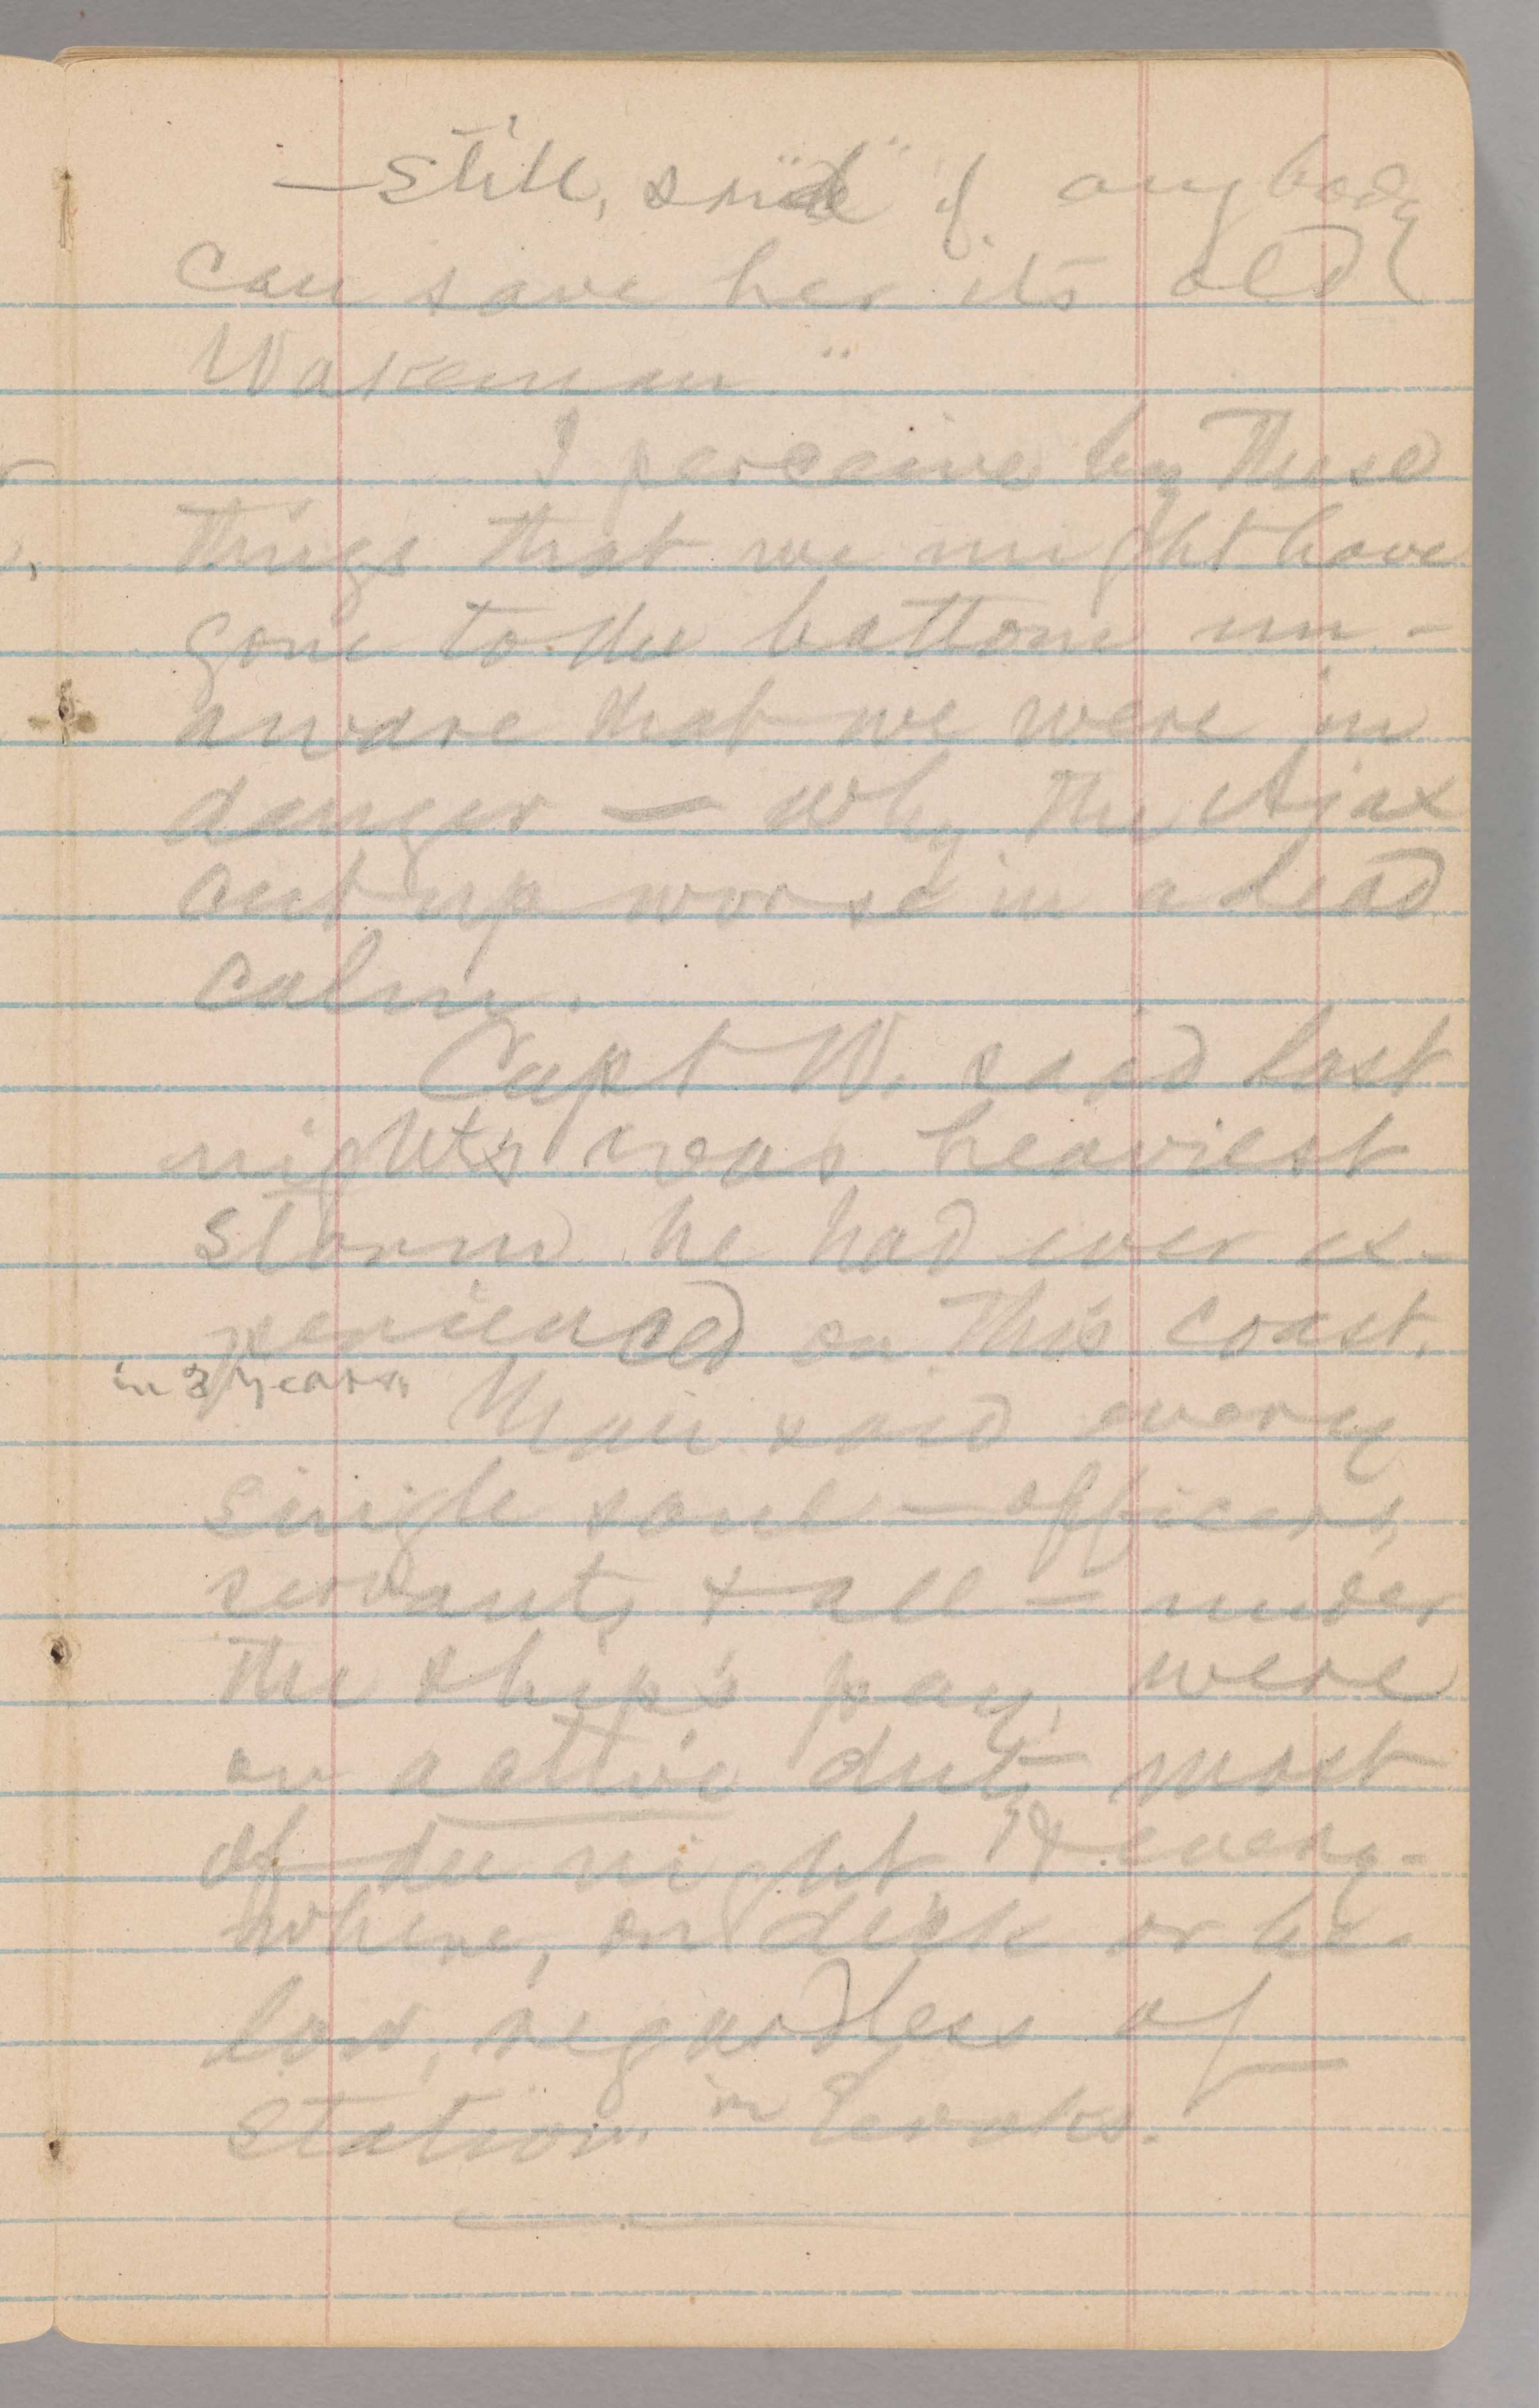 — Still, said "if anybody
can save her its old
Wakeman"
I perceive by these
things that we might have
gone to the bottom un-
aware that we were in
danger — why the Ajax
cut up worse in a dead
calm.
Capt W. said last
night's was heaviest
storm he had ever ex-
perienced on this coast.
in 2 years.
Main said every
single soul — officers,
servants & all — under
the ship's pay, were
on active duty most
of the night & every-
where, on deck or be-
low, regardless of
station